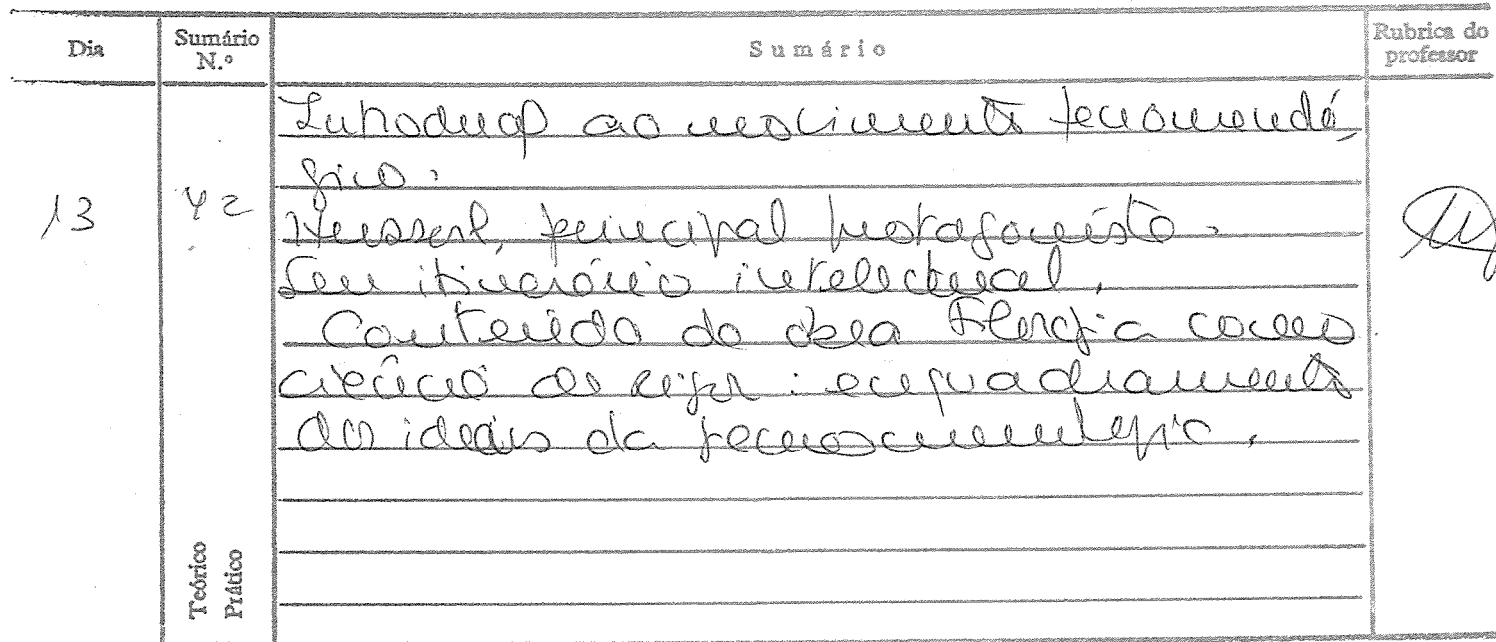 Dia
Sumário N.º
Sumário
Rubrica do professor
Introdução ao movimento fenomenoló-
gico.
13
42
Husserl, principal protagonista.
Seu itinerário intelectual.
Conteúdo da obra Filosofia como
ciência de rigor: enquadramento
das ideias da fenomenologia.
Teórico
Prático